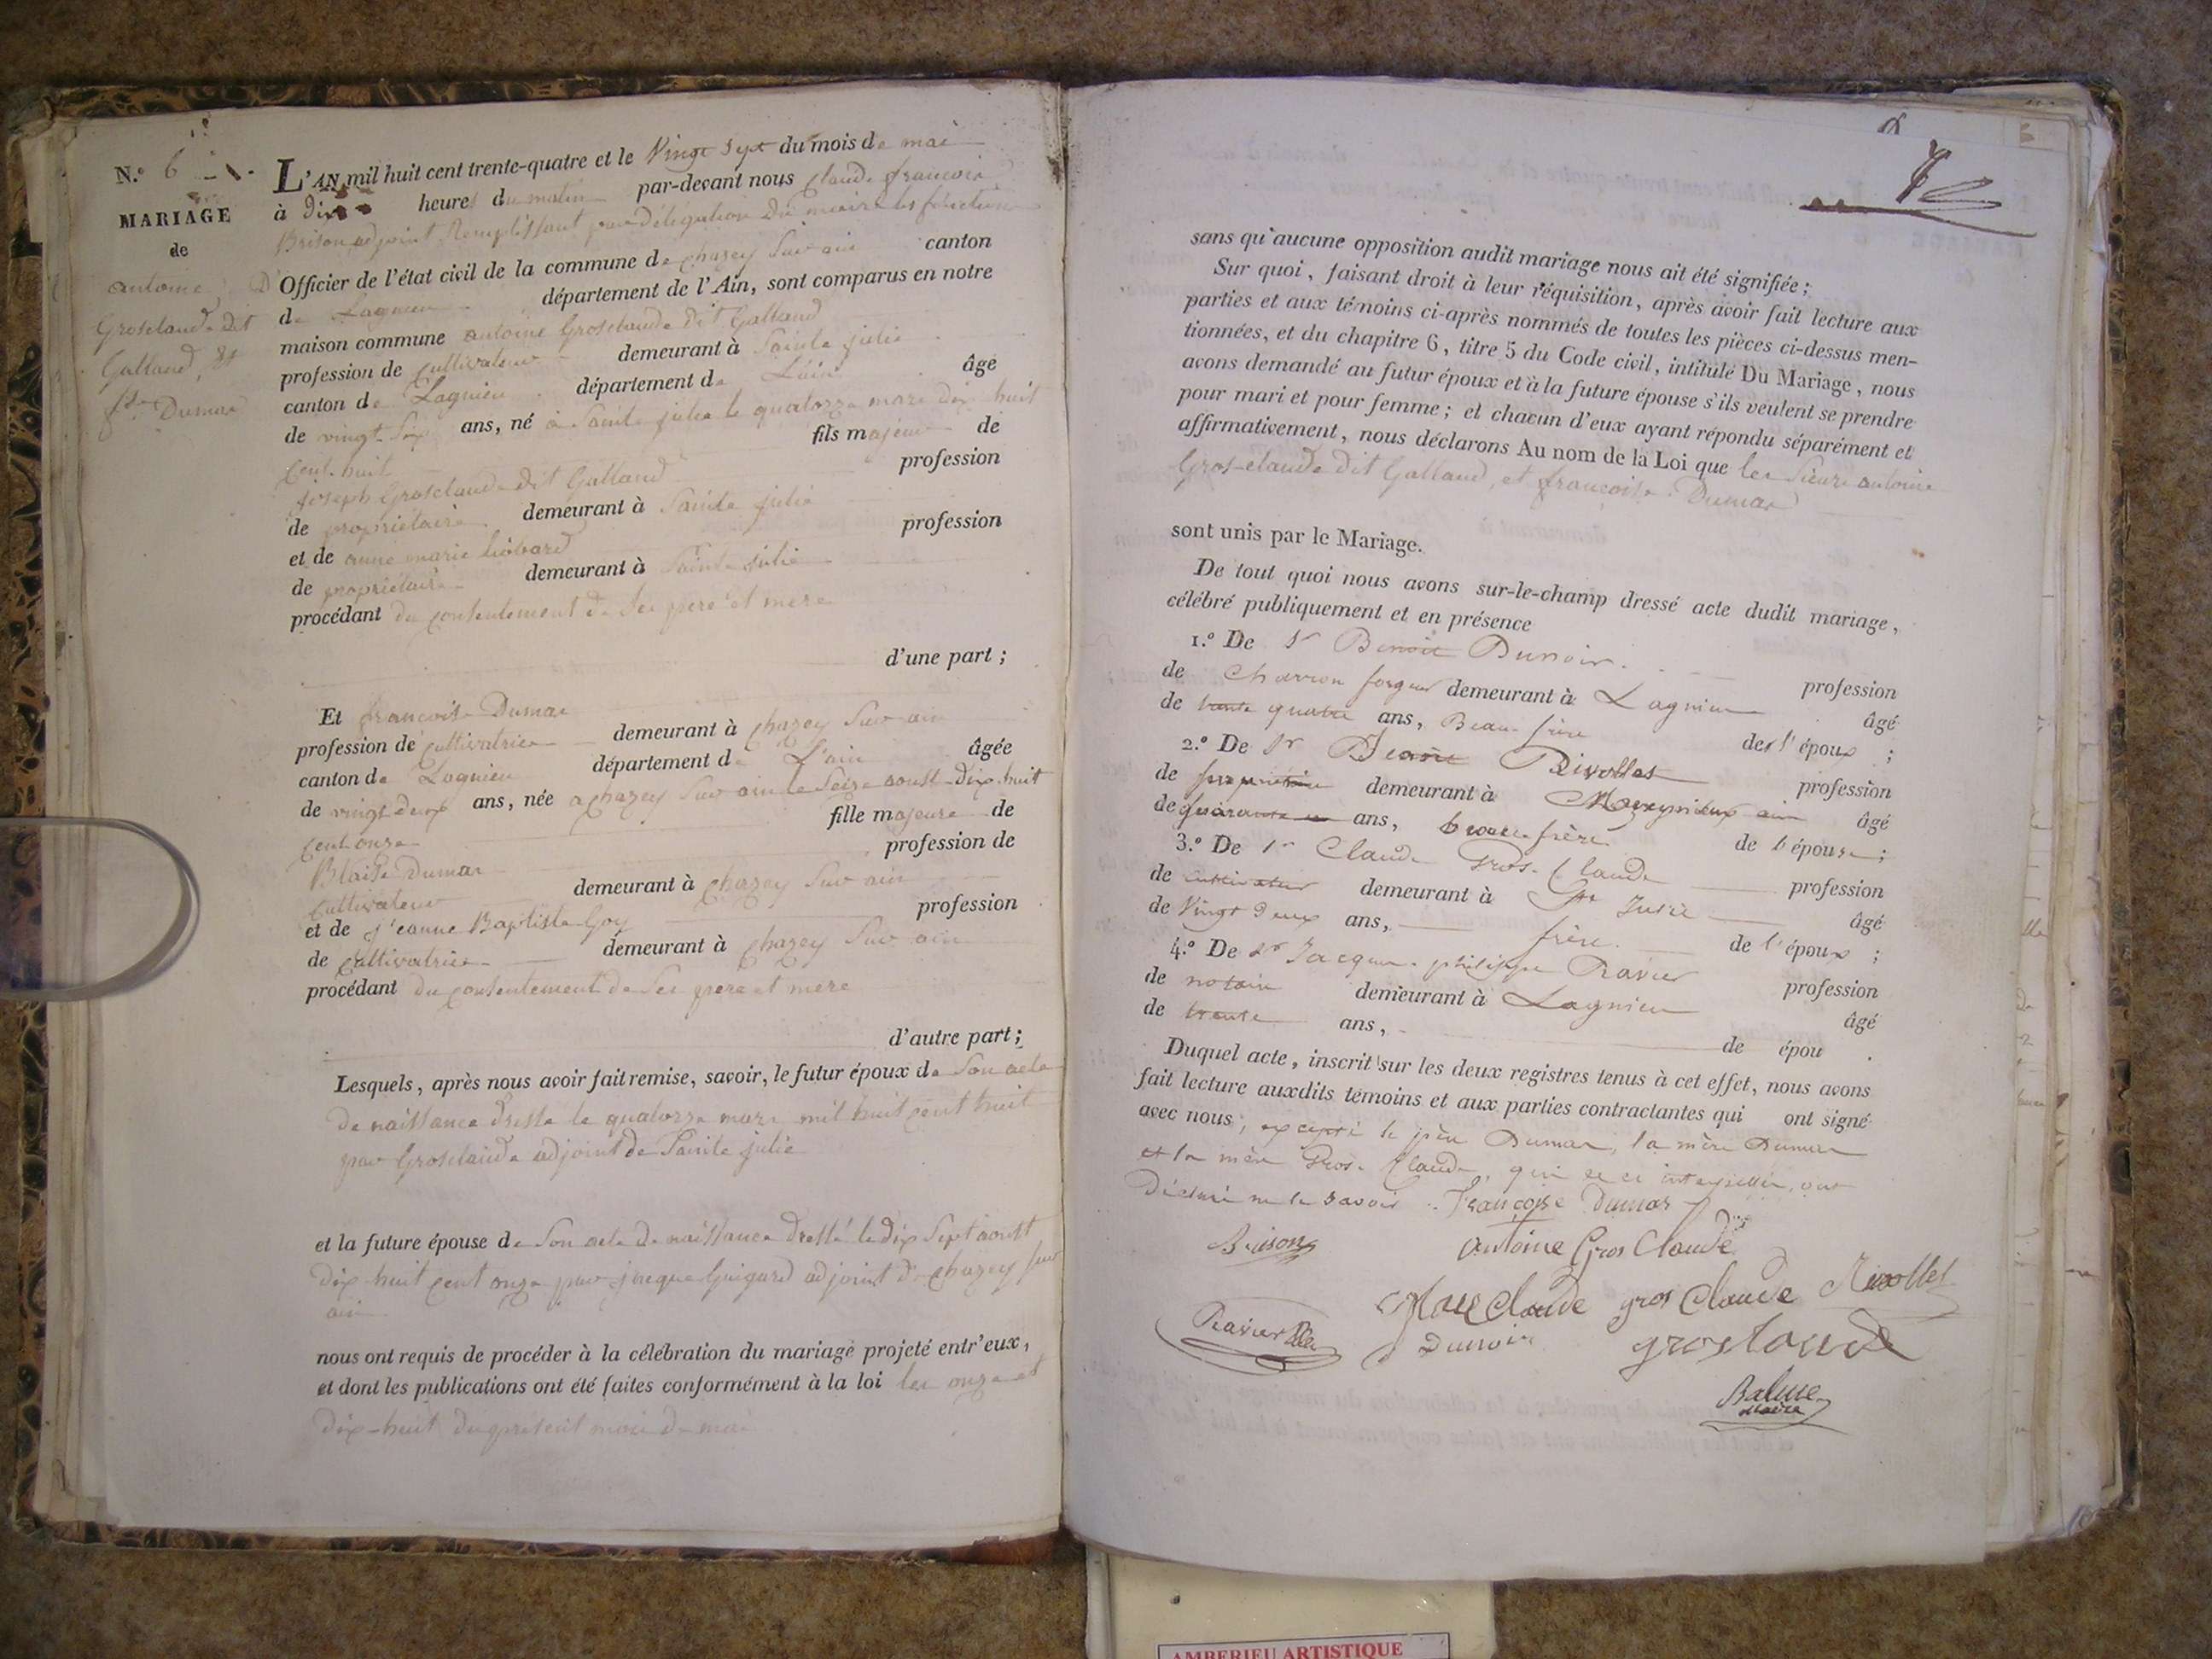 N.º 6
MARIAGE
de
antoine
Grosclaude dit
Galland, &
fse Dumas
L'AN mil huit cent trente-quatre et le Vingt Sept du mois de mai
à dix heures du matin par-devant nous Claude françois
Brison adjoint Remplissant par délégation du maire les fonctions
D'Officier de l'état civil de la commune de chazey Sur ain canton
de Lagnieu département de l'Ain, sont comparus en notre
maison commune antoine Grosclaude dit Galland
profession de cultivateur demeurant à Sainte julie
canton de Lagnieu département de L'ain âgé
de vingt Six ans, né à Sainte julie le quatorze mars dix huit
cent huit fils majeur de
joseph Grosclaude dit Galland profession
de propriétaire demeurant à Sainte julie
et de anne marie liobard profession
de propriétaire demeurant à Sainte julie
procédant du consentement de Ses pere et mere
d'une part ;
Et françoise Dumas
profession de cultivatrice demeurant à chazey Sur ain
canton de Lagnieu département de L'ain âgée
de vingt deux ans, née a chazey Sur ain le Seize aoust dix huit
cent onze fille majeure de
Blaise Dumas profession de
cultivateur demeurant à chazey Sur ain
et de jeanne Baptiste Goy profession
de cultivatrice demeurant à chazey Sur ain
procédant du consentement de Ses pere et mere
d'autre part ;
Lesquels, après nous avoir fait remise, savoir, le futur époux de Son acte
de naissance dressé le quatorze mars mil huit cent huit
par Grosclaude adjoint de Sainte julie
et la future épouse de Son acte de naissance dressé le dix Sept aoust
dix huit cent onze par jacque Guigard adjoint de chazey Sur
ain
nous ont requis de procéder à la célébration du mariage projeté entr'eux,
et dont les publications ont été faites conformément à la loi les onze et
dix-huit du présent mois de mai
sans qu'aucune opposition audit mariage nous ait été signifiée ;
Sur quoi, faisant droit à leur réquisition, après avoir fait lecture aux
parties et aux témoins ci-après nommés de toutes les pièces ci-dessus men-
tionnées, et du chapitre 6, titre 5 du Code civil, intitulé Du Mariage, nous
avons demandé au futur époux et à la future épouse s'ils veulent se prendre
pour mari et pour femme ; et chacun d'eux ayant répondu séparément et
affirmativement, nous déclarons Au nom de la Loi que les Sieurs antoine
Gros-claude dit Galland, et françoise Dumas
sont unis par le Mariage.
De tout quoi nous avons sur-le-champ dressé acte dudit mariage,
célébré publiquement et en présence
1.º De Sr Benoit Dunoir profession
de Charron forgeur demeurant à Lagnieu âgé
de trente quatre ans, Beau frère de l'époux ;
2.º De Sr Rivollet profession
de propriétaire demeurant à ain âgé
de quarante ans, beau frère de l'épouse ;
3.º De Sr Claude Gros-Claude profession
de cultivateur demeurant à Ste Julie âgé
de Vingt deux ans, frère de l'époux ;
4.º De Sr Jacques philippe Ravier profession
de notaire demeurant à Lagnieu âgé
de trente ans, de épou .
Duquel acte, inscrit sur les deux registres tenus à cet effet, nous avons
fait lecture auxdits témoins et aux parties contractantes qui ont signé
avec nous, excepté le père Dumas, la mère Dumas
et la mère Gros-Claude, qui de ce interpellés, ont
Déclaré ne le savoir. Françoise Dumas
Brison Antoine Gros Claude
Claude gros Claude Rivollet
Ravier Dunoir grosclaude
Balme
Maire
AMBERIEU ARTISTIQUE